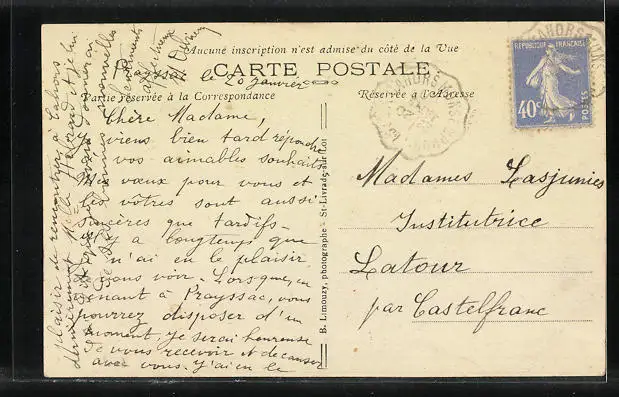 Aucune inscription n'est admise du côté de la Vue
CARTE POSTALE
Partie réservée à la Correspondance
Réservée à l'Adresse
Prayssac le 20 janvier
Chère Madame,
Je viens bien tard répondre
à vos aimables souhaits
Mes vœux pour vous et
les vôtres sont aussi
sincères que tardifs.
Il y a longtemps que
je n'ai eu le plaisir
de vous voir. Lorsque, en
venant à Prayssac, vous
pourrez disposer d'un
moment je serai heureuse
de vous recevoir et de causer
avec vous. J'ai eu le
plaisir de rencontrer à Cahors
dernièrement
B. Limouzy, photographe - St-Livrade-sur-Lot
Madames Lasjunies
Institutrice
Latour
par Castelfranc
RÉPUBLIQUE FRANÇAISE
40c
POSTES
CAHORS